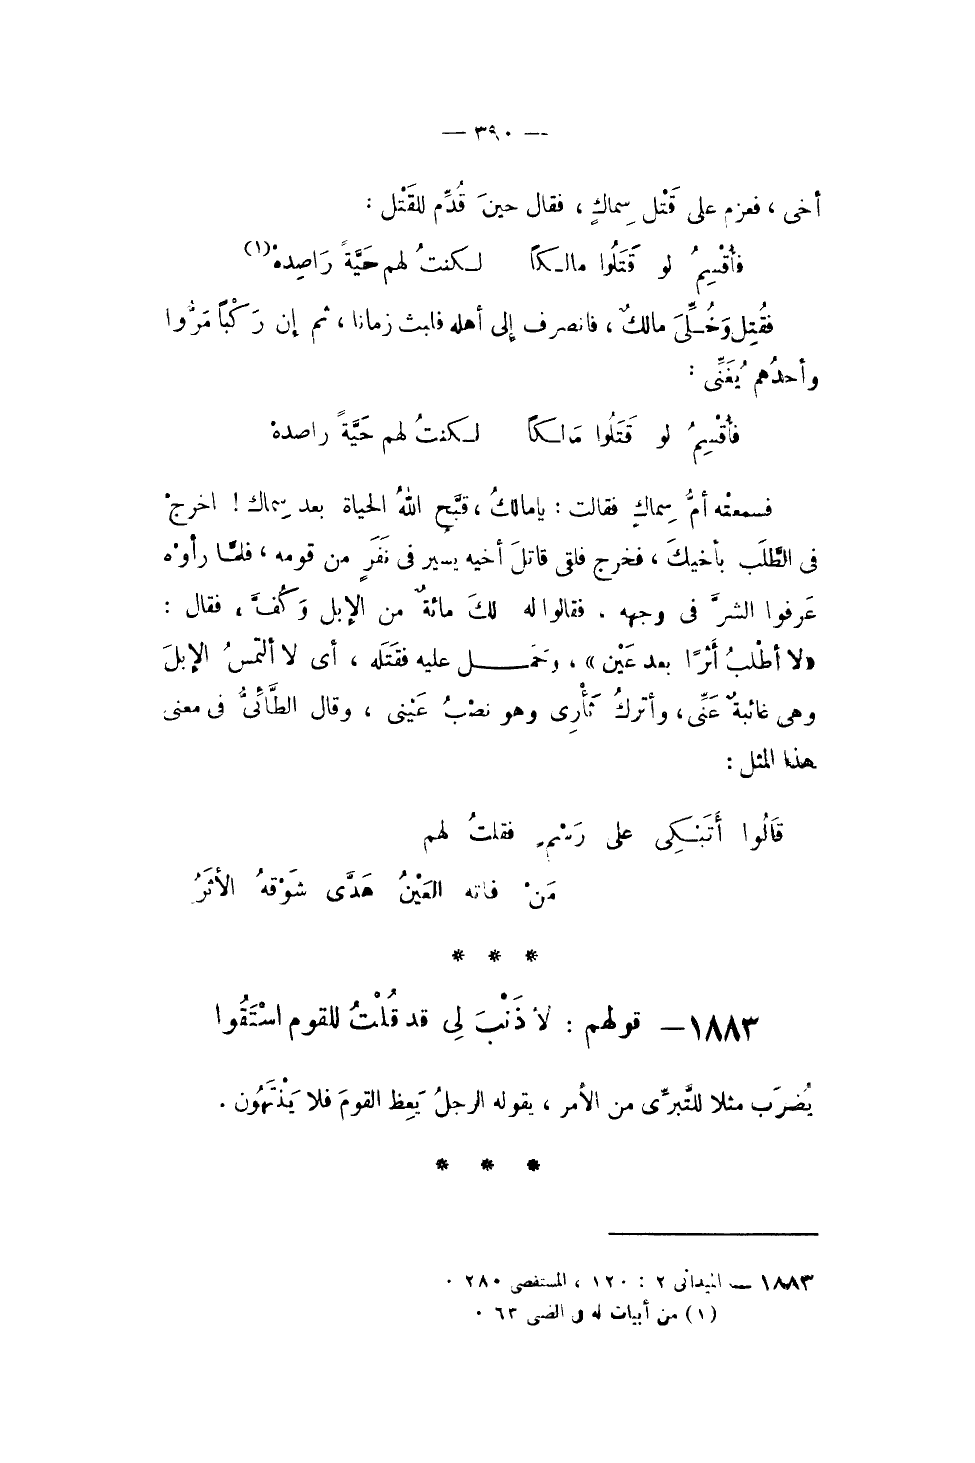 — ٣٩٠ —
أخى ، فعزم على قَتْل سِماكٍ ، فقال حينَ قُدِّم للقَتْل :
فأُقْسِمُ لو قَتَلُوا مالـكاً لـكنتُ لهم حَيَّةً رَاصِدهْ(١)
فقُتِل وَخُـلِّىَ مالكٌ ، فانصرف إلى أهله فلبث زمانا ، ثم إن رَكْبًا مَرُّوا
وأحدُهم يُغَنِّى :
فأُقْسِمُ لو قَتَلُوا مَالـكاً لـكنتُ لهم حَيَّةً راصدهْ
فسمعتْه أمُّ سِماكٍ فقالت : يامالكُ ، قبَّح اللهُ الحياة بعد سِماك ! اخرجْ
فى الطَّلَب بأخيكَ ، فخرج فلقى قاتلَ أخيه يسير فى نَفَرٍ من قومه ، فلمَّا رأوْه
عَرفوا الشرَّ فى وجهه . فقالوا له لكَ مائةٌ من الإبل وَكُفَّ ، فقال :
«لا أطْلبُ أَثرًا بعد عَيْن» ، وَحَمَـــل عليه فقَتَله ، أى لا ألتمسُ الإبلَ
وهى غائبةٌ عَنِّى ، وأتركُ ثَأْرِى وهو نصْبُ عَيْنى ، وقال الطَّائىُّ فى معنى
هذا المثل :
قَالُوا أَتَبْـكِى على رَسْمٍ فقلتُ لهم
مَنْ فاته العَيْنُ هَدَّى شَوْقَهُ الأثَرُ
* * *
١٨٨٣ — قولهم : لاَ ذَنْبَ لِى قد قُلْتُ للقوم اسْتَقُوا
يُضرَب مثلا للتَّبرِّى من الأمر ، يقوله الرجلُ يَعِظ القومَ فلا يَنْتَهُون .
* * *
١٨٨٣ — الميدانى ٢ : ١٢٠ ، المستقصى ٢٨٠ .
(١) من أبيات له فى الضبى ٦٣ .